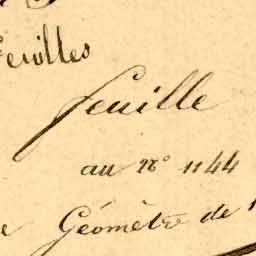 Feuilles
feuille
au n° 1144
Géomètre de